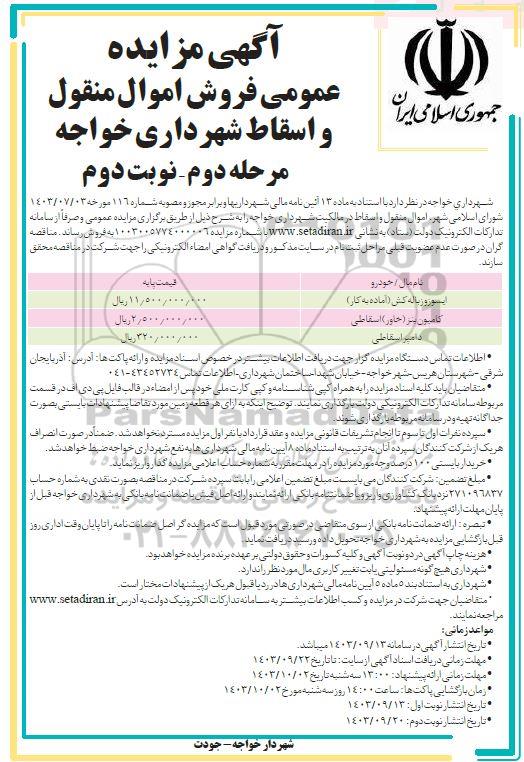 آگهی مزایده
عمومی فروش اموال منقول
و اسقاط شهرداری خواجه
مرحله دوم - نوبت دوم
جمهوری اسلامی ایران
شهرداری خواجه در نظر دارد با استناد به ماده ۱۳ آئین نامه مالی شهرداریها و برابر مجوز و مصوبه شماره ۱۱۶ مورخه ۱۴۰۳/۰۷/۰۳
شورای اسلامی شهر، اموال منقول و اسقاط در مالکیت شهرداری خواجه را به شرح ذیل از طریق برگزاری مزایده عمومی و صرفاً از سامانه
تدارکات الکترونیک دولت (ستاد) به نشانی www.setadiran.ir با شماره مزایده ۱۰۰۳۰۰۵۷۷۴۰۰۰۰۰۶ به فروش رساند. مناقصه
گران در صورت عدم عضویت قبلی مراحل ثبت نام در سایت مذکور و دریافت گواهی امضاء الکترونیکی را جهت شرکت در مناقصه محقق
سازند.
نام مال / خودرو قیمت پایه
ایسوزو زباله کش (آماده به کار) ۱۱/۵۰۰/۰۰۰/۰۰۰ ریال
کامیون بنز (خاور) اسقاطی ۲/۵۰۰/۰۰۰/۰۰۰ ریال
دامپر اسقاطی ۳۲۰/۰۰۰/۰۰۰ ریال
• اطلاعات تماس دستگاه مزایده گزار جهت دریافت اطلاعات بیشتر در خصوص اسناد مزایده و ارائه پاکت ها: آدرس: آذربایجان
شرقی - شهرستان هریس - شهر خواجه - خیابان شهدا - ساختمان شهرداری - اطلاعات تماس ۴۳۴۵۲۷۳۴-۰۴۱
• متقاضیان باید کلیه اسناد مزایده را به همراه کپی شناسنامه و کپی کارت ملی خود پس از امضاء در قالب فایل پی دی اف در قسمت
مربوطه سامانه تدارکات الکترونیکی دولت بارگذاری نمایند. توضیح اینکه به ازای هر قطعه زمین مورد تقاضا پیشنهادات بایستی بصورت
جداگانه تهیه و در سامانه مربوطه بارگذاری شوند.
• سپرده نفرات اول تا سوم تا انجام تشریفات قانونی مزایده و عقد قرارداد با نفر اول مزایده مسترد نخواهد شد. ضمناً در صورت انصراف
هریک از شرکت کنندگان سپرده آنان به ترتیب به استناد ماده ۸ آیین نامه مالی شهرداری ها به نفع شهرداری خواجه ضبط خواهد شد.
• خریدار بایستی ۱۰۰ درصد وجه مورد مزایده را در مهلت مقرر به شماره حساب اعلامی مزایده گذار واریز نماید.
• مبلغ تضمین: شرکت کنندگان می بایست مبلغ تضمین اعلامی را بابت سپرده شرکت در مناقصه بصورت نقدی به شماره حساب
۲۷۱۰۹۶۸۳۷ نزد بانک کشاورزی واریز و یا ضمانتنامه بانکی ارائه نمایند و ارائه اصل فیش یا ضمانت نامه بانکی به شهرداری خواجه قبل از
پایان مهلت ارائه پیشنهاد:
• تبصره: ارائه ضمانت نامه بانکی از سوی متقاضی در صورتی مورد قبول است که مزایده گر اصل ضمانت نامه را تا پایان وقت اداری روز
قبل بازگشایی مزایده به شهرداری خواجه تحویل داده و رسید دریافت نماید.
• هزینه چاپ آگهی در دو نوبت آگهی و کلیه کسورات و حقوق دولتی بر عهده برنده مزایده خواهد بود.
• شهرداری هیچ گونه مسئولیتی بابت تغییر کاربری مال مورد نظر را ندارد.
• شهرداری به استناد بند ۵ ماده ۵ آیین نامه مالی شهرداری ها در رد یا قبول هریک از پیشنهادات مختار است.
• متقاضیان جهت شرکت در مزایده و کسب اطلاعات بیشتر به سامانه تدارکات الکترونیک دولت به آدرس www.setadiran.ir
مراجعه نمایند.
مواعد زمانی:
• تاریخ انتشار آگهی در سامانه ۱۴۰۳/۰۹/۱۳ میباشد.
• مهلت زمانی دریافت اسناد آگهی از سایت: تا تاریخ ۱۴۰۳/۰۹/۲۲
• مهلت زمانی ارائه پیشنهاد: ۱۳:۰۰ سه شنبه تاریخ ۱۴۰۳/۱۰/۰۲
• زمان بازگشایی پاکت ها: ساعت ۱۴:۰۰ روز سه شنبه مورخ ۱۴۰۳/۱۰/۰۲
• تاریخ انتشار نوبت اول: ۱۴۰۳/۰۹/۱۳
• تاریخ انتشار نوبت دوم: ۱۴۰۳/۰۹/۲۰
شهردار خواجه - جودت